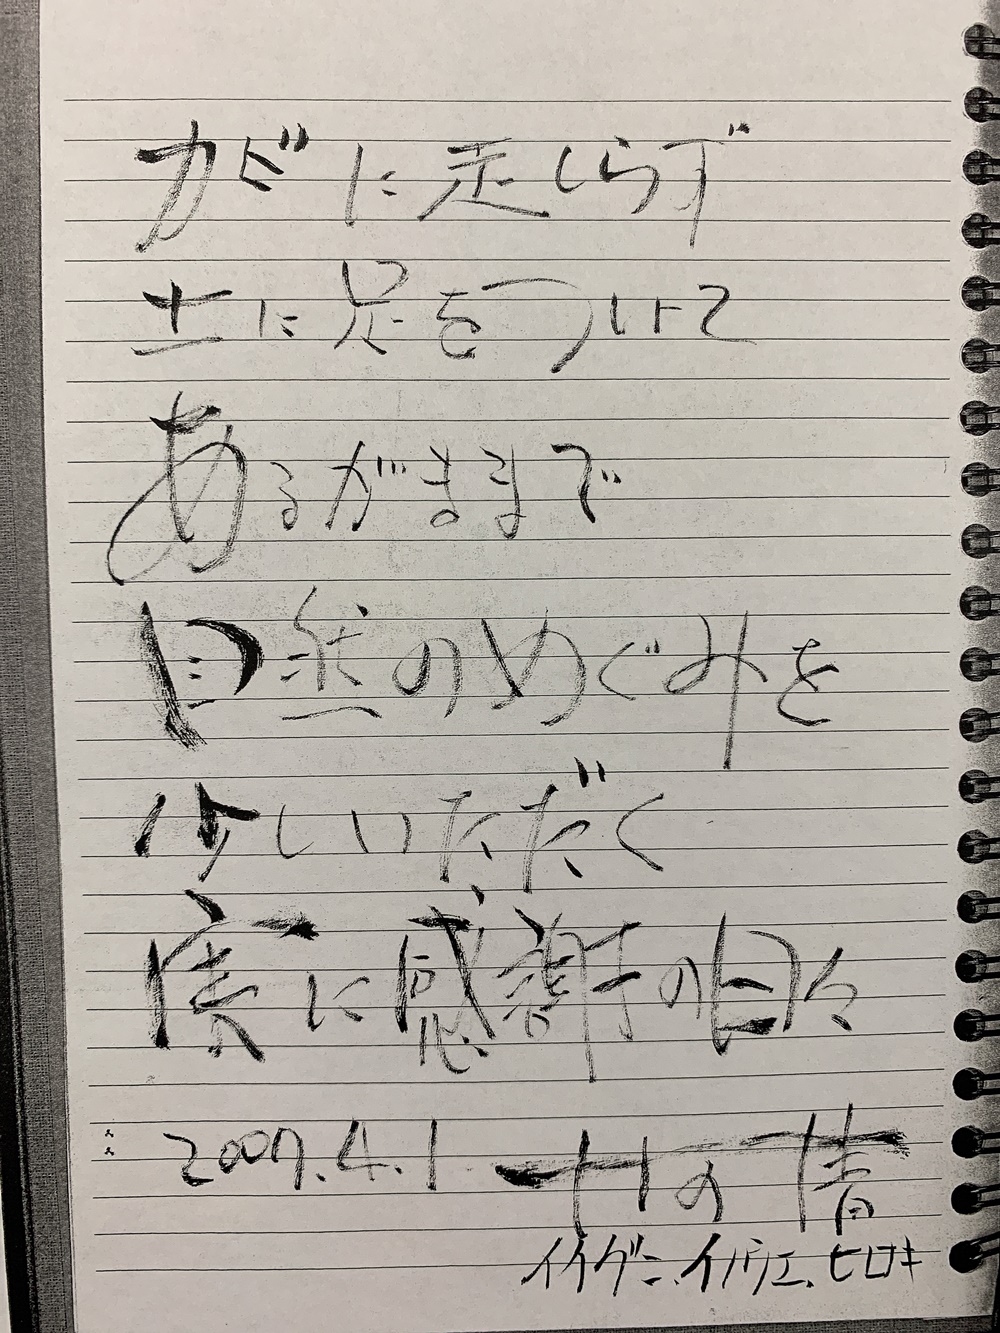 カビに走しらず
土に足をついて
あるがままで
自然のめぐみを
少しいただく
実に感謝の日々
2007.4.1 の情
イイグニ、イノウエ、ヒロキ